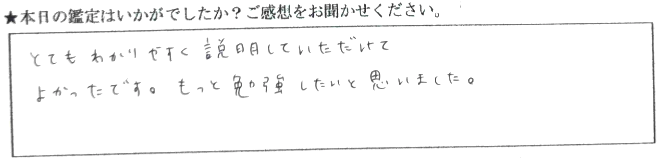 ★本日の鑑定はいかがでしたか?ご感想をお聞かせください。
とてもわかりやすく説明していただけて
よかったです。もっと勉強したいと思いました。